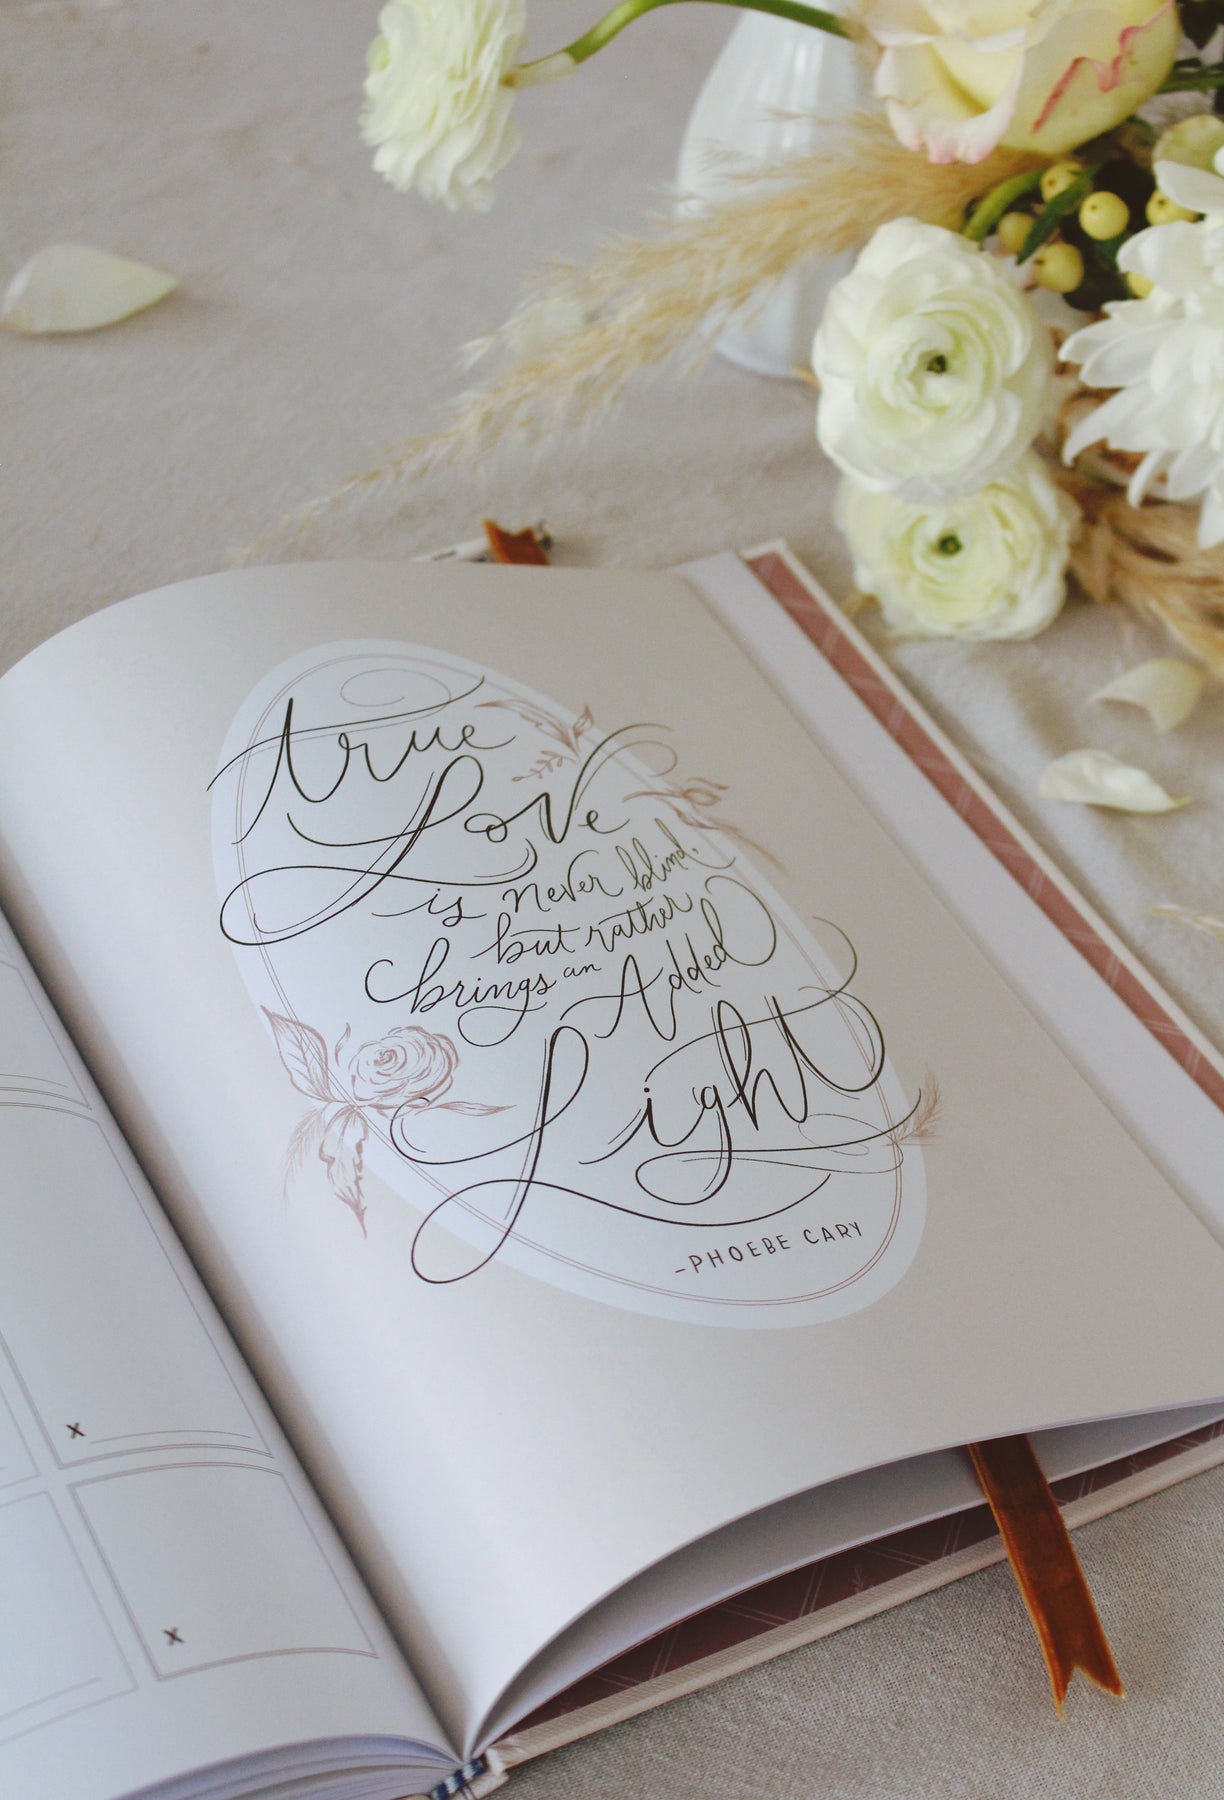 true
Love
is never blind,
but rather
brings an Added
Light
-PHOEBE CARY
x
x